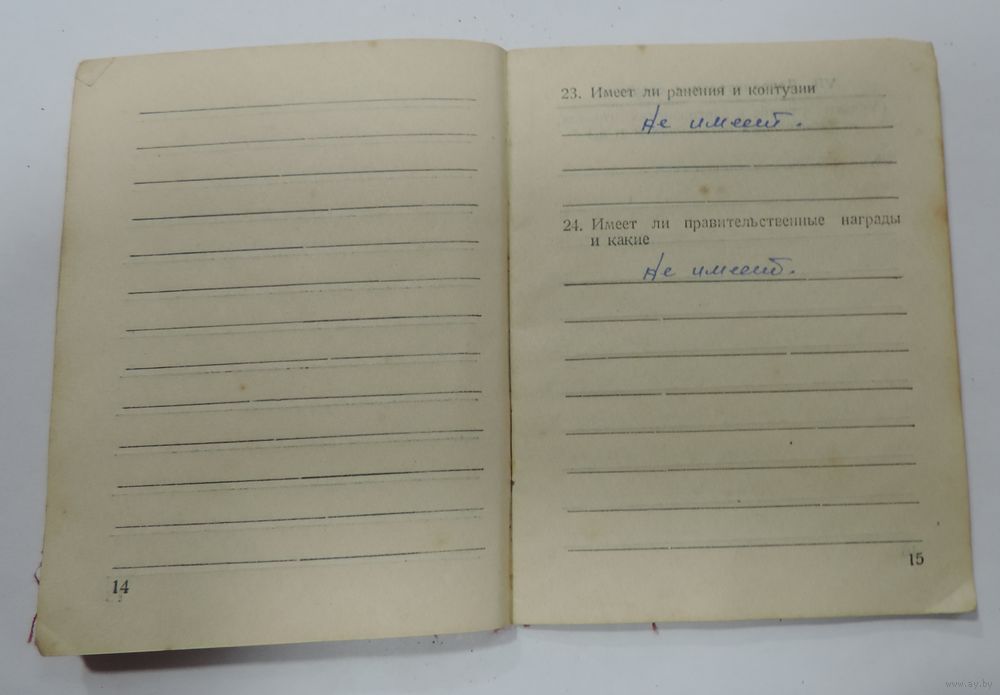 14
23. Имеет ли ранения и контузии
Не имеет.
24. Имеет ли правительственные награды
и какие
Не имеет.
15
www.ay.by